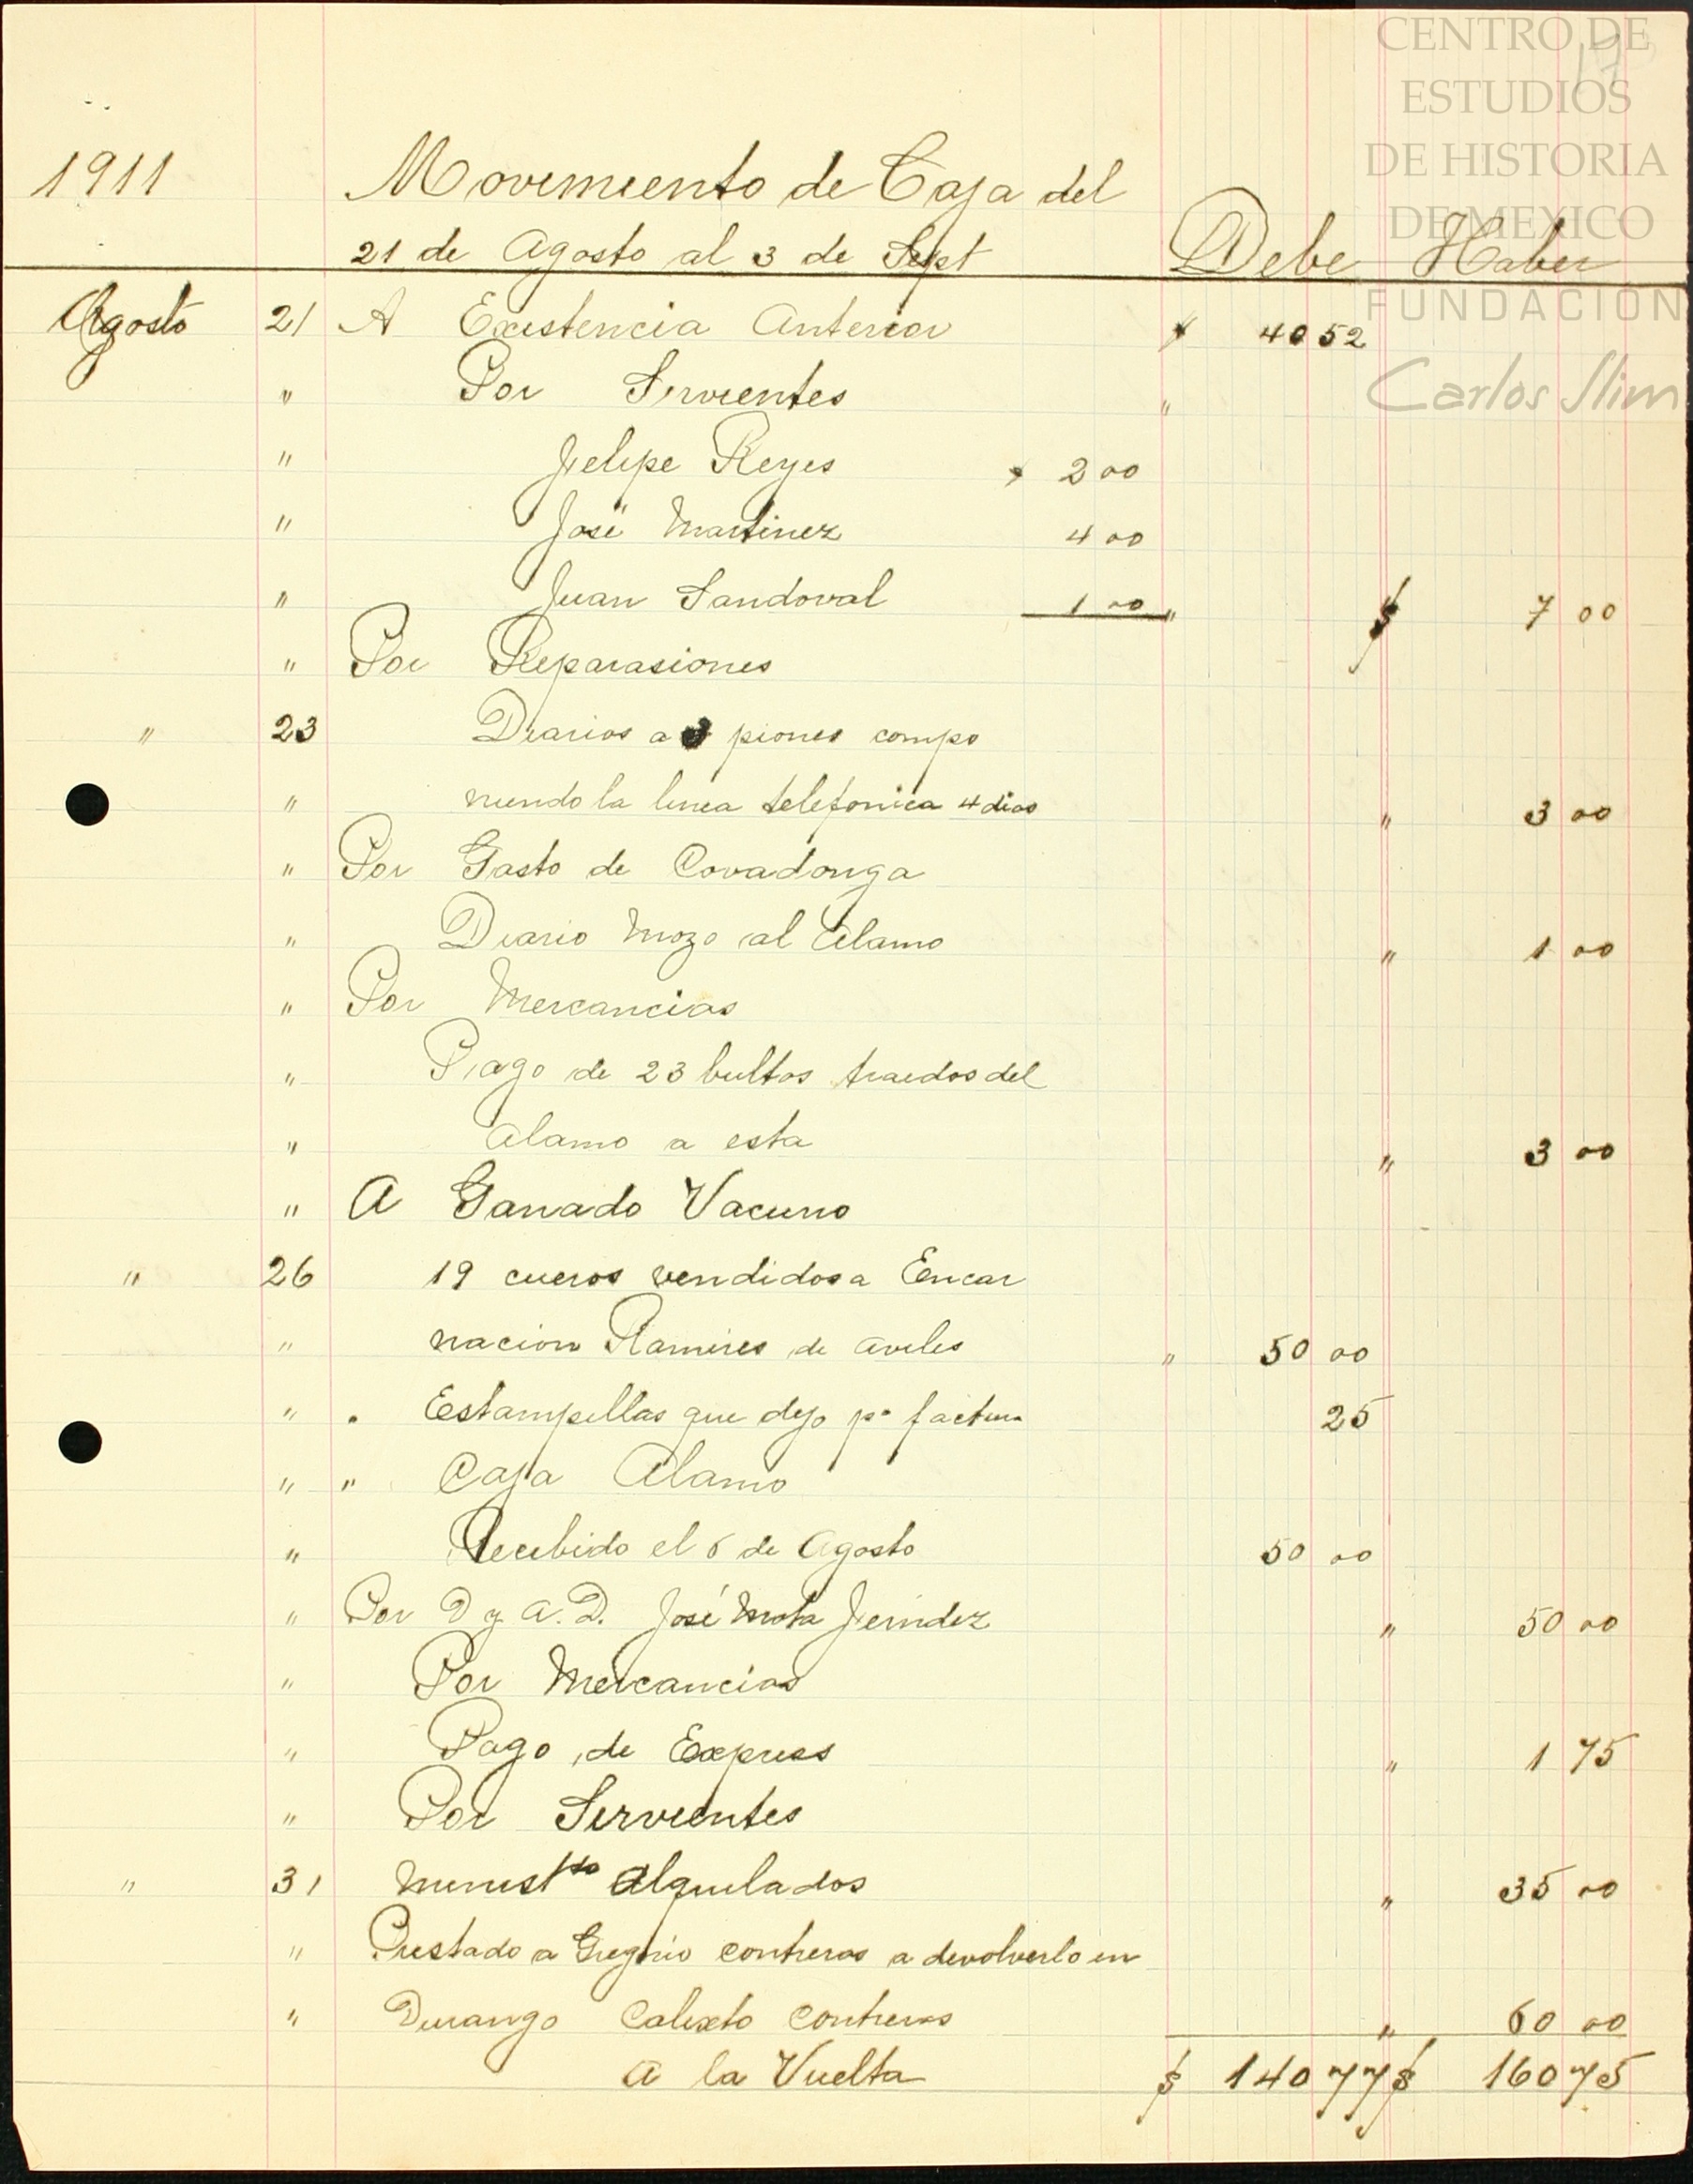 CENTRO DE
ESTUDIOS
DE HISTORIA
DE MEXICO
FUNDACIÓN
Carlos Slim
17
1911 Movimiento de Caja del
21 de Agosto al 3 de Sept Debe Haber
Agosto 21 A Existencia Anterior $ 40 52
" Por Sirvientes "
" Felipe Reyes $ 2 00
" José Martinez 4 00
" Juan Sandoval 1 00 " $ 7 00
" Por Reparasiones
" 23 Diarios a 3 piones compo
" niendo la linea telefonica 4 dias " 3 00
" Por Gasto de Covadonga
" Diario Mozo al Alamo " 1 00
" Por Mercancias
" Pago de 23 bultos traidos del
" Alamo a esta " 3 00
" A Ganado Vacuno
" 26 19 cueros vendidos a Encar
" nacion Ramires de Aviles " 50 00
" " Estampillas que dejo pa factura 25
" " Caja Alamo
" Recibido el 6 de Agosto 50 00
" Por D y A. D. José Mota " 50 00
" Por Mercancias
" Pago de Express " 1 75
" Por Sirvientes
" 31 Minist Alquilados " 35 00
" Prestado a Gregorio Contreras a devolverlo en
" Durango Calixto Contreras " 60 00
A la Vuelta $ 140 77 $ 160 75